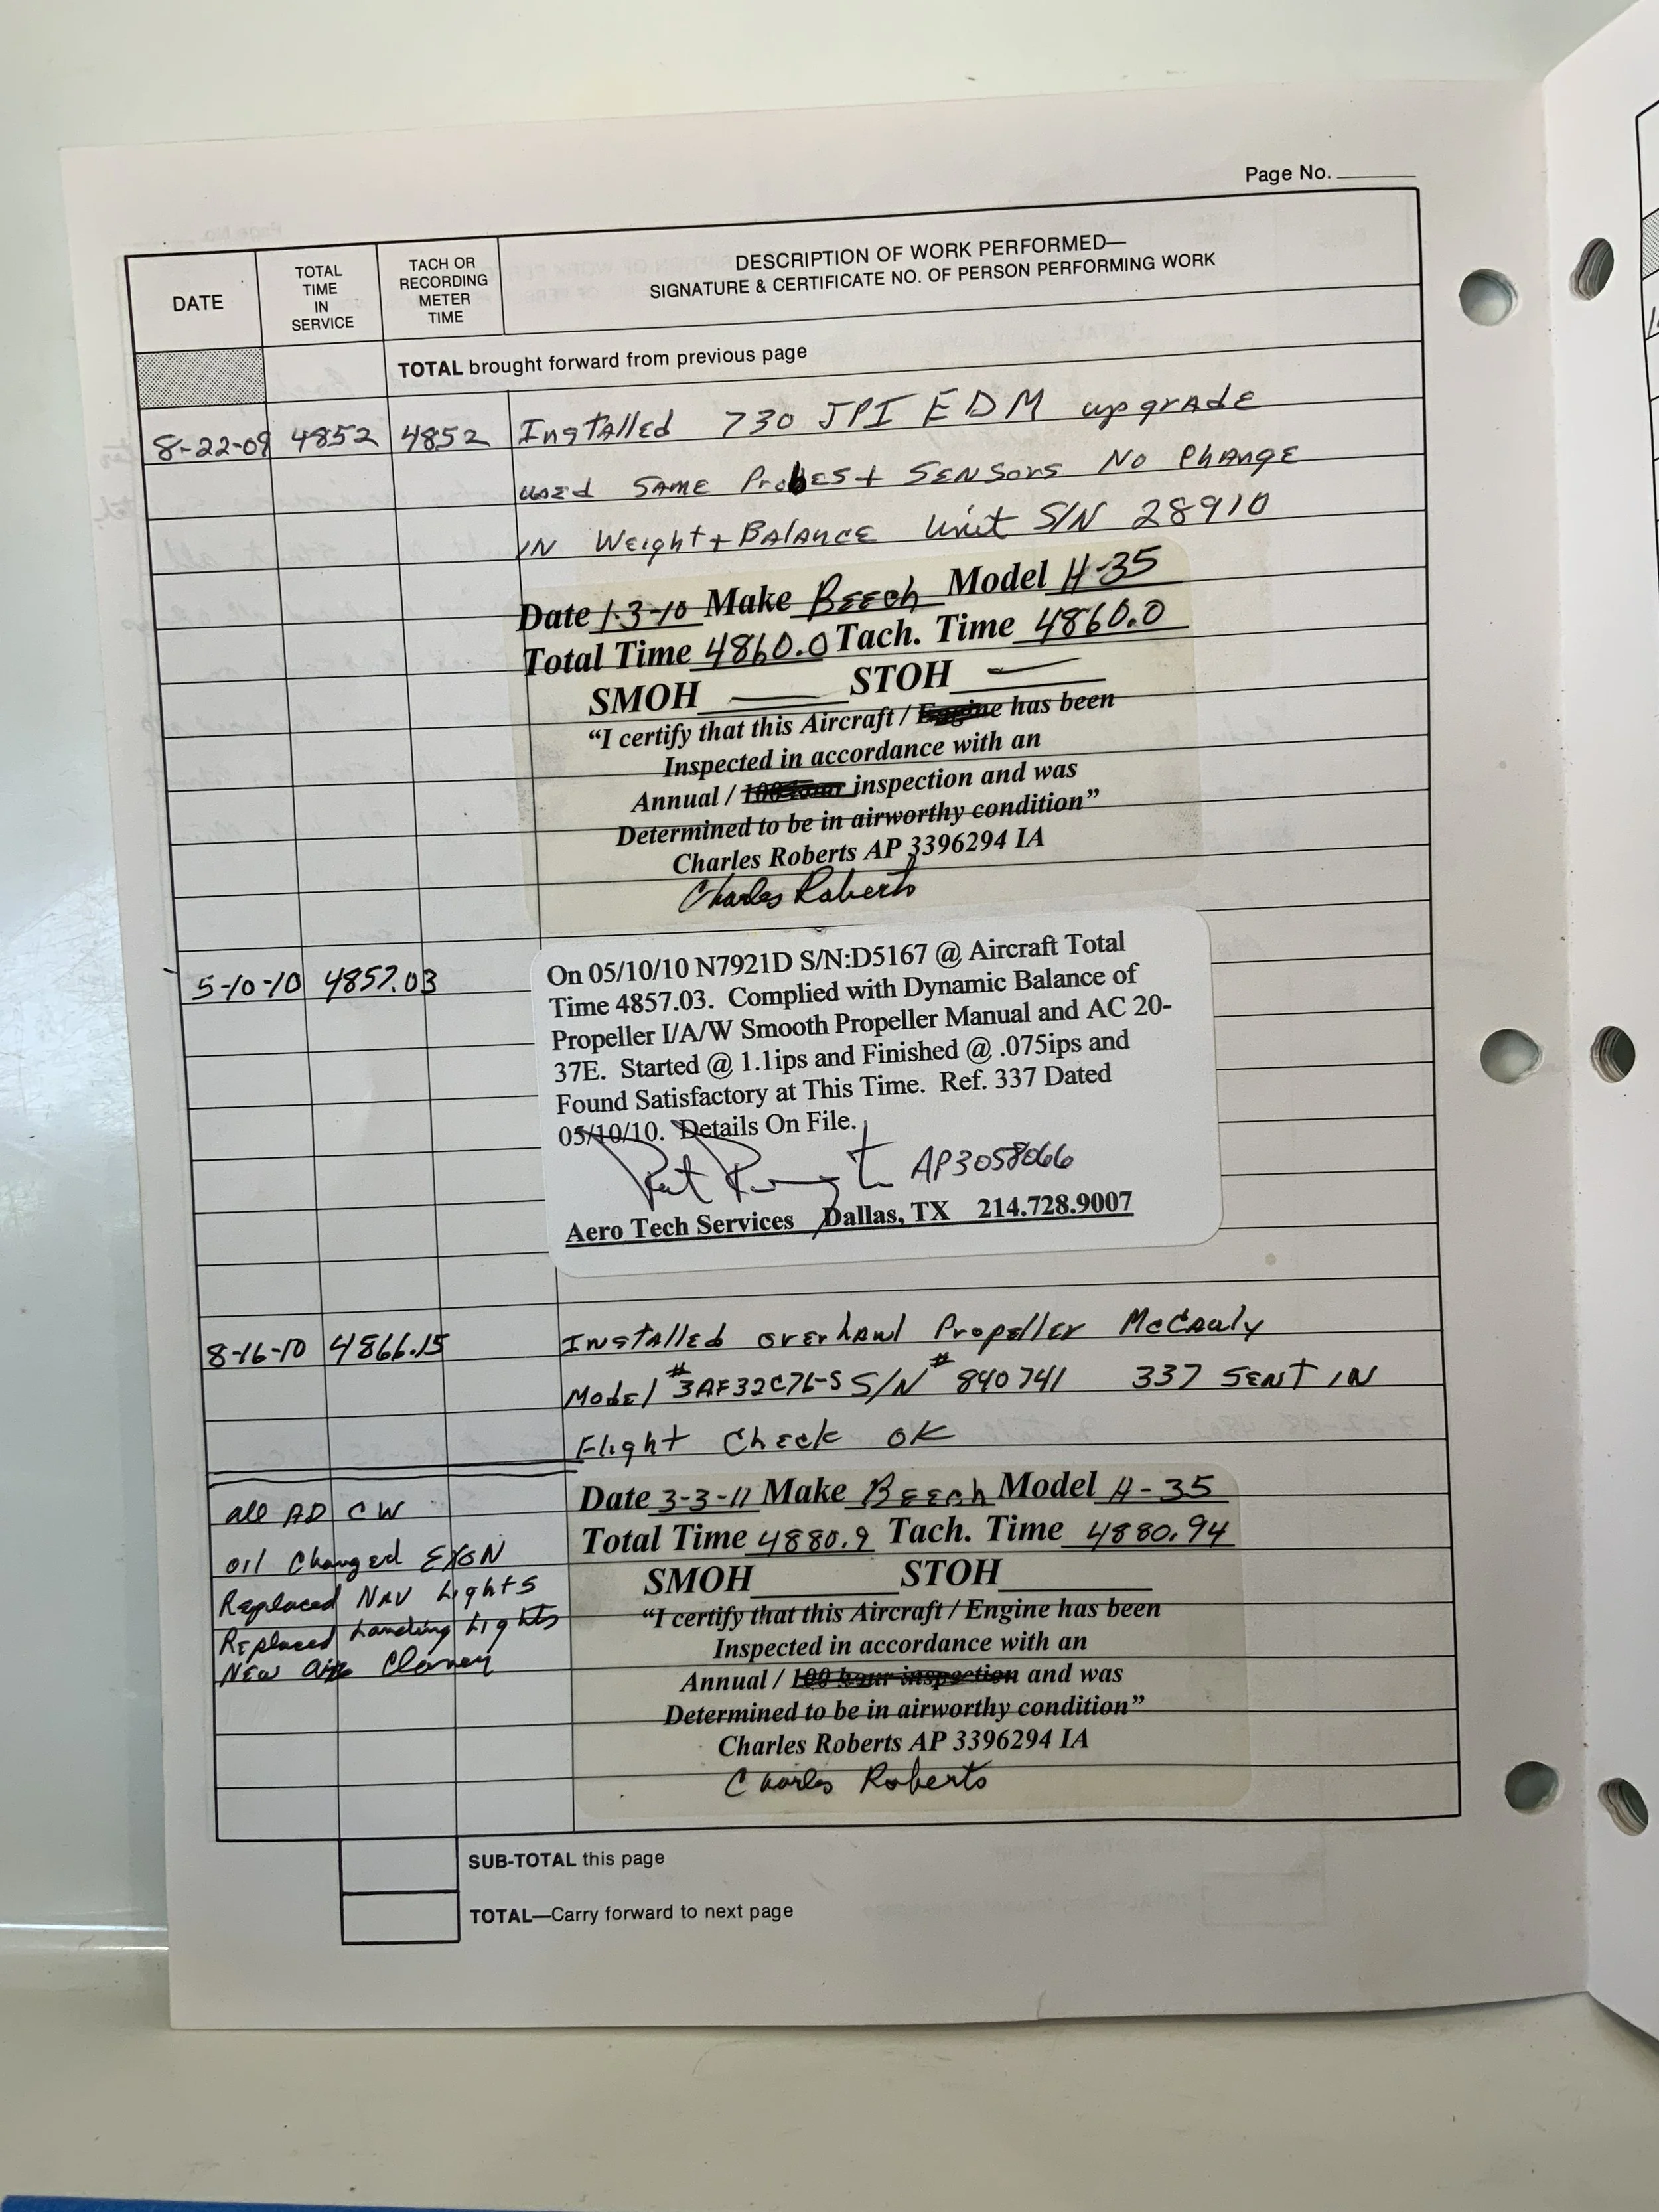 Page No.
DATE
TOTAL TIME IN SERVICE
TACH OR RECORDING METER TIME
DESCRIPTION OF WORK PERFORMED—
SIGNATURE & CERTIFICATE NO. OF PERSON PERFORMING WORK
TOTAL brought forward from previous page
8-22-09 4852 4852 Installed 730 JPI EDM upgrade
used same Probes + Sensors No Change
in Weight + Balance Unit S/N 28910
Date 1-3-10 Make Beech Model H-35
Total Time 4860.0 Tach. Time 4860.0
SMOH — STOH —
“I certify that this Aircraft / Engine has been
Inspected in accordance with an
Annual / 100 hour inspection and was
Determined to be in airworthy condition”
Charles Roberts AP 3396294 IA
Charles Roberts
5-10-10 4857.03
On 05/10/10 N7921D S/N:D5167 @ Aircraft Total
Time 4857.03. Complied with Dynamic Balance of
Propeller I/A/W Smooth Propeller Manual and AC 20-
37E. Started @ 1.1ips and Finished @ .075ips and
Found Satisfactory at This Time. Ref. 337 Dated
05/10/10. Details On File.
AP3058066
Aero Tech Services Dallas, TX 214.728.9007
8-16-10 4866.15 Installed overhaul Propeller McCauly
Model # 3AF32C76-S S/N # 840741 337 sent in
Flight Check OK
all AD CW
oil Changed EXON
Replaced Nav Lights
Replaced Landing Lights
New air
Date 3-3-11 Make Beech Model H-35
Total Time 4880.9 Tach. Time 4880.94
SMOH STOH
“I certify that this Aircraft / Engine has been
Inspected in accordance with an
Annual / 100 hour inspection and was
Determined to be in airworthy condition”
Charles Roberts AP 3396294 IA
Charles Roberts
SUB-TOTAL this page
TOTAL—Carry forward to next page